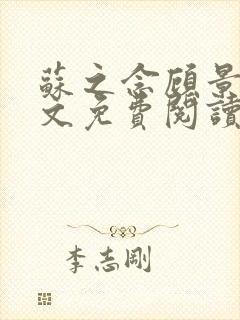 蘇之念顧景
文免費閱讀
李志剛